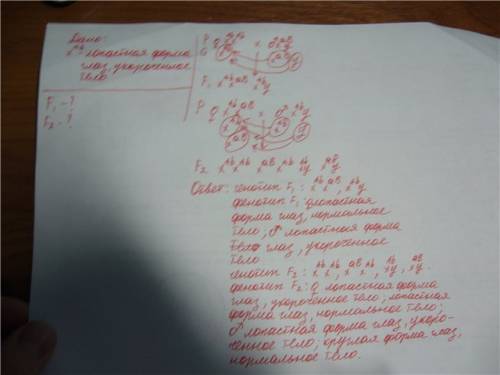 Дано:
x^Ab - лопастная форма
глаз, укороченное
тело
F₁ - ?
F₂ - ?
P ♀ x ♂
G
F₁ x^Ab x^aB x^Ab y
P ♀ x^Ab x^aB x ♂ x^Ab y
F₂ x^Ab x^Ab x^aB x^Ab x^Ab y x^aB y
Ответ: генотип F₁: x^Ab x^aB, x^Ab y
фенотип F₁: ♀ лопастная
форма глаз, нормальное
тело; ♂ лопастная форма
глаз, укороченное
тело
генотип F₂: x^Ab x^Ab, x^aB x^Ab, x^Ab y, x^aB y.
фенотип F₂: ♀ лопастная форма
глаз, укороченное тело; лопастная
форма глаз, нормальное тело;
♂ лопастная форма глаз, укоро-
ченное тело; круглая форма глаз,
нормальное тело.